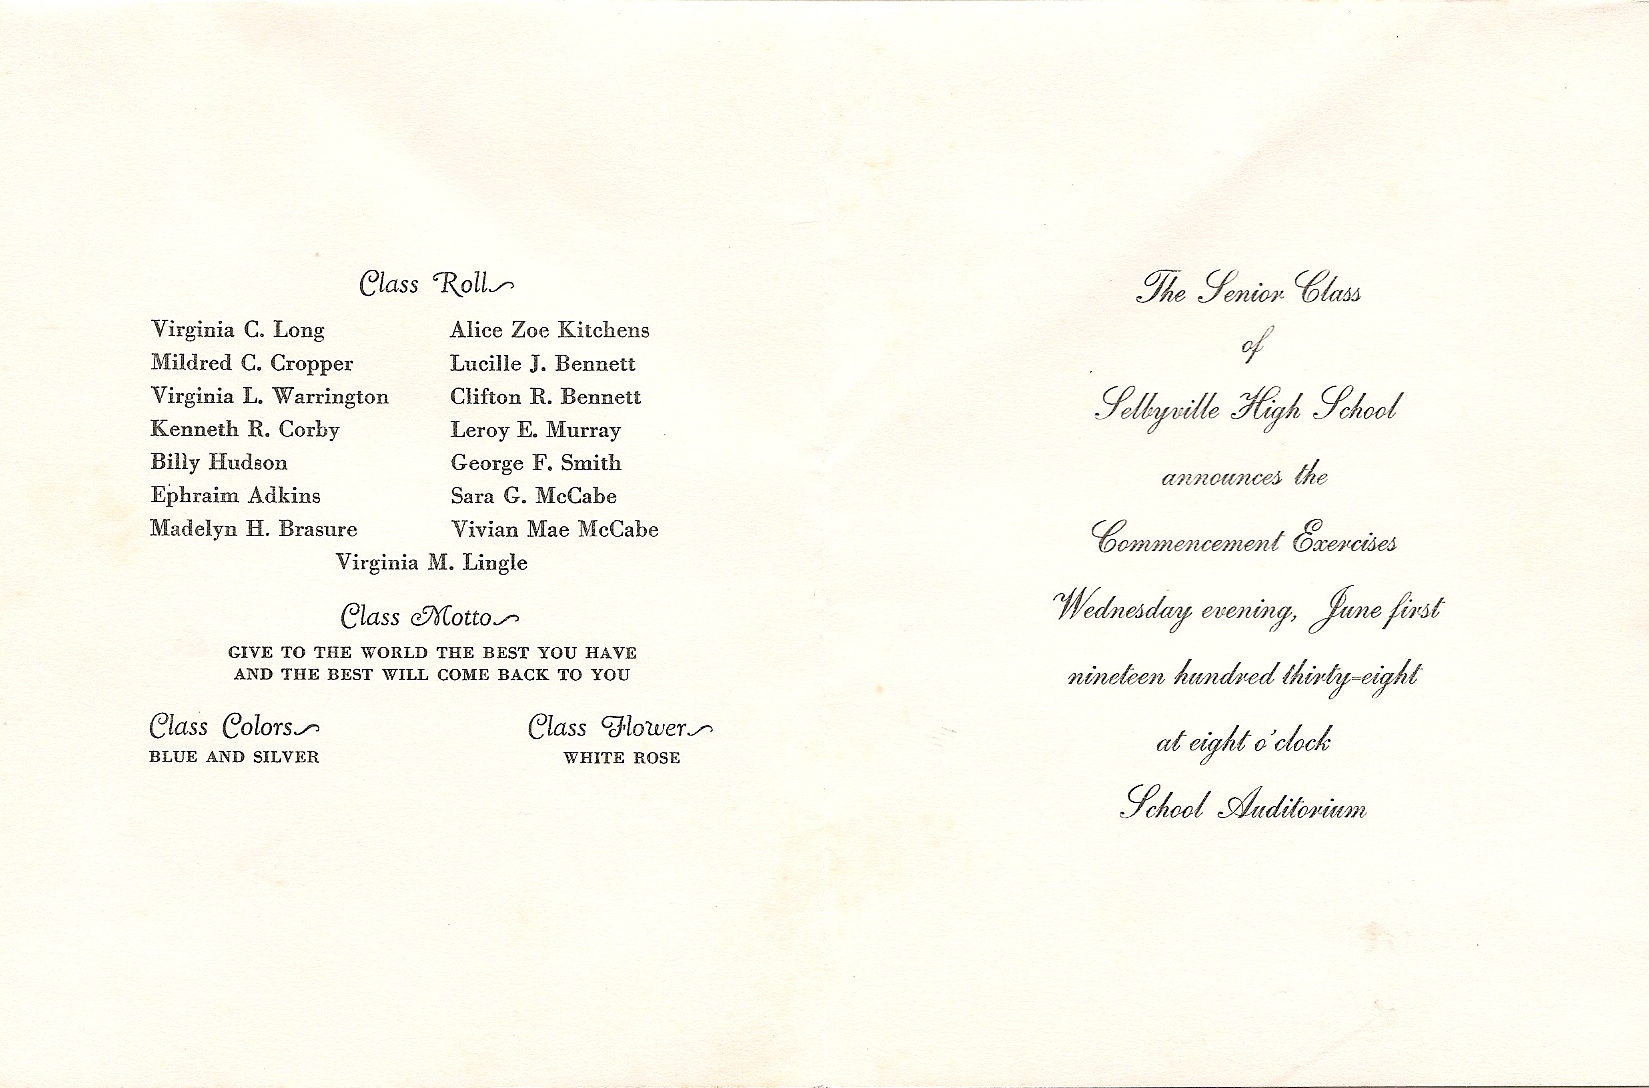 Class Roll
Virginia C. Long
Mildred C. Cropper
Virginia L. Warrington
Kenneth R. Corby
Billy Hudson
Ephraim Adkins
Madelyn H. Brasure
Alice Zoe Kitchens
Lucille J. Bennett
Clifton R. Bennett
Leroy E. Murray
George F. Smith
Sara G. McCabe
Vivian Mae McCabe
Virginia M. Lingle
Class Motto
GIVE TO THE WORLD THE BEST YOU HAVE
AND THE BEST WILL COME BACK TO YOU
Class Colors
BLUE AND SILVER
Class Flower
WHITE ROSE
The Senior Class
of
Selbyville High School
announces the
Commencement Exercises
Wednesday evening, June first
nineteen hundred thirty-eight
at eight o'clock
School Auditorium